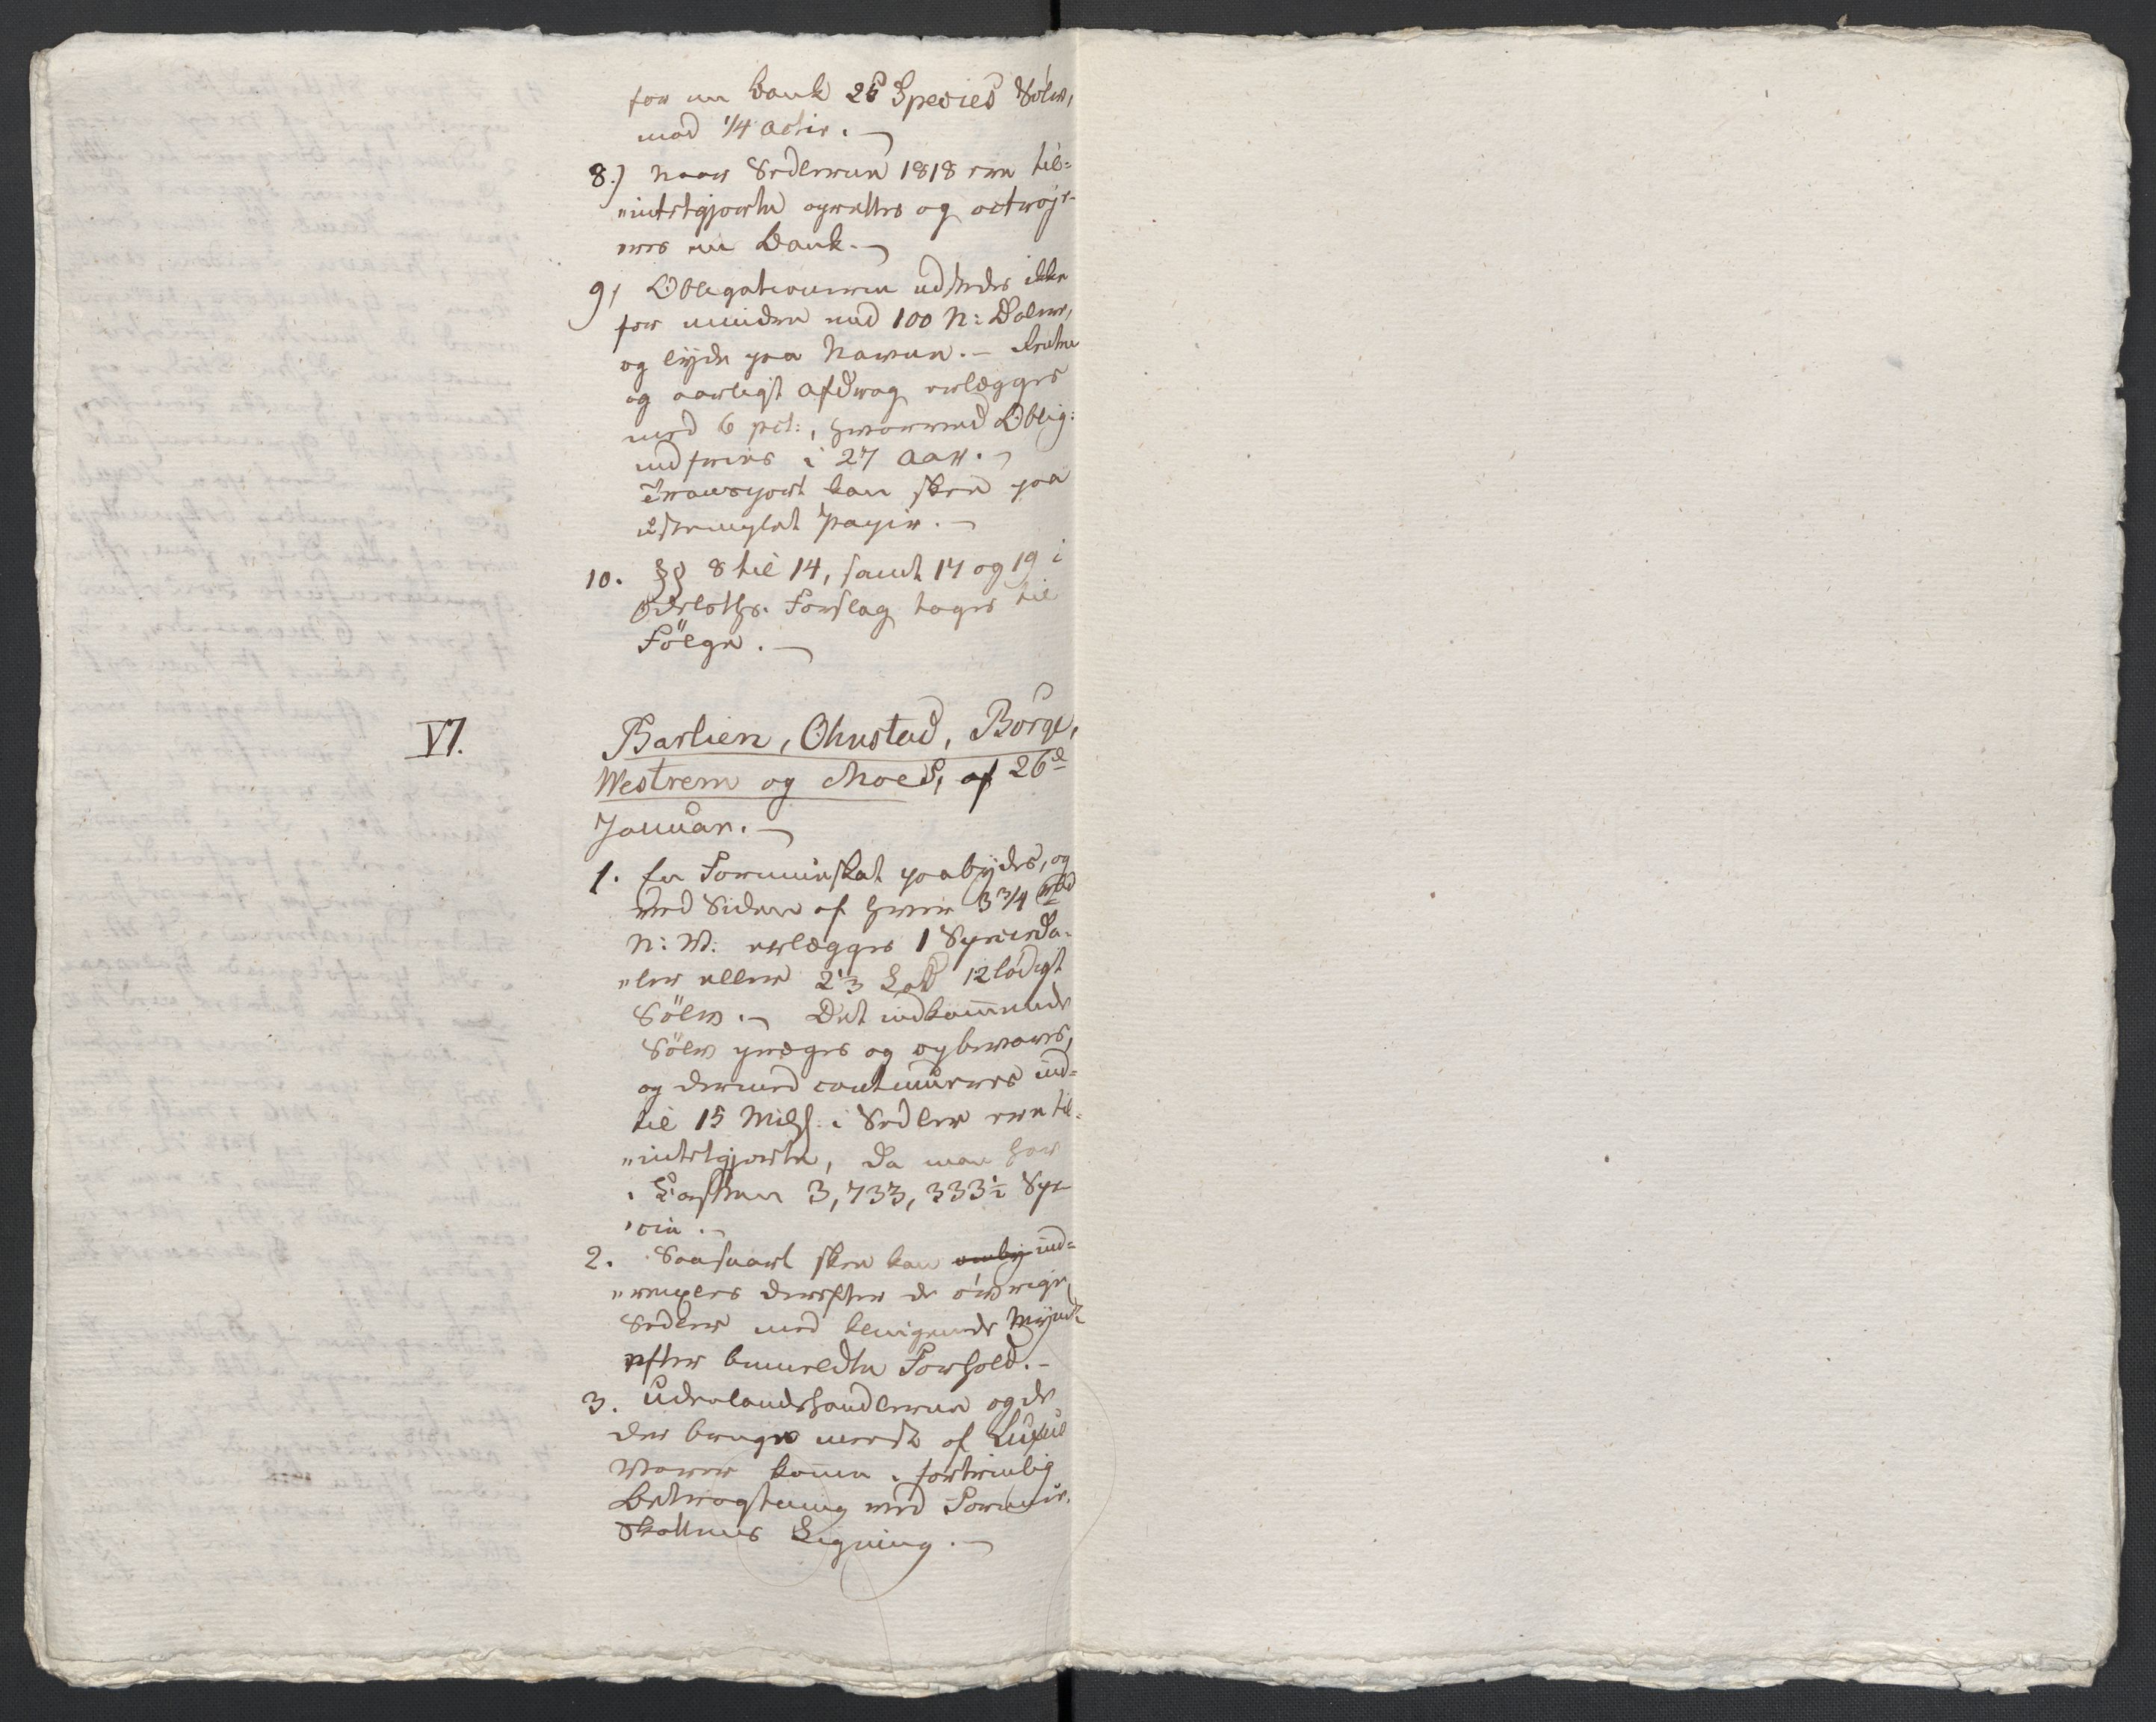 for en Bank 25 Species Sölv,
mod 1/4 Actie. —
8.) Naar Sedlerne 1818 ere til=
„intetgjorte oprettes og octrojе-
eres en Bank. —
9) Obligationerne udstedes ikke
for mindre end 100 N: Daler,
og lyde paa Navne. — Rente
og aarligt Afdrag erlægges
med 6 pct:, hvorved Oblig:
indfries i 27 Aar. —
Transport kan skee paa
ustemplet Papir. —
10. §§ 8 til 14, samt 17 og 19 i
Forslag tages til
Fölge. —
VI.
Barlien, Ohnstad, Börge,
Westrem og Moes, af 26de
Januar. —
1. En Formueskat paabydes, og
ved Siden af hver 3 3/4 rbd
N: V: erlægges 1 Speciesda-
„ler eller 2 1/3 Lod 12 lödigt
Sölv. — Det indkommende
Sölv præges og opbevares,
og dermed continueres ind=
til 15 Mill: i Sedler ere til-
„intetgjorte, da man har
i Kassen 3,733,333 1/2 Spe
„cie. —
2. Saasnart skee kan ind=
„vexles derefter de övrige
Sedler med klingende Mynt
efter bemeldte Forhold. —
3. Udenlandshandlerne og de
der bruge meest af Luxus
Varer komme i fortrinlig
Betragtning ved Formue-
Skattens Ligning. —